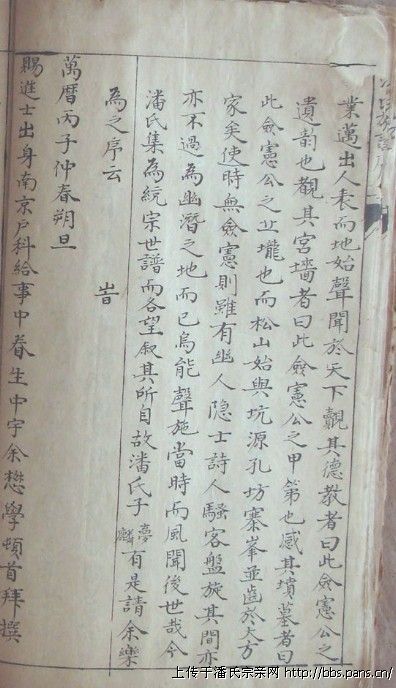 業邁出人表而地始聲聞於天下觀其德教者曰此僉憲公之
遺韵也觀其宮墻者曰此僉憲公之甲第也感其墳墓者曰
此僉憲公之丘壠也而松山始與坑源孔坊寨峯並齒於大方
家矣使時無僉憲則雖有幽人隐士詩人騷客盤旋其間亦
亦不過為幽潛之地而已烏能聲施當時而風聞後世哉今
潘氏集為統宗世譜而各望叙其所自故潘氏子夢麟有是請余樂
為之序云 旹
萬曆丙子仲春朔旦
賜進士出身南京戶科給事中眷生中宇余懋學頓首拜撰
上传于潘氏宗亲网 http://bbs.pans.cn/